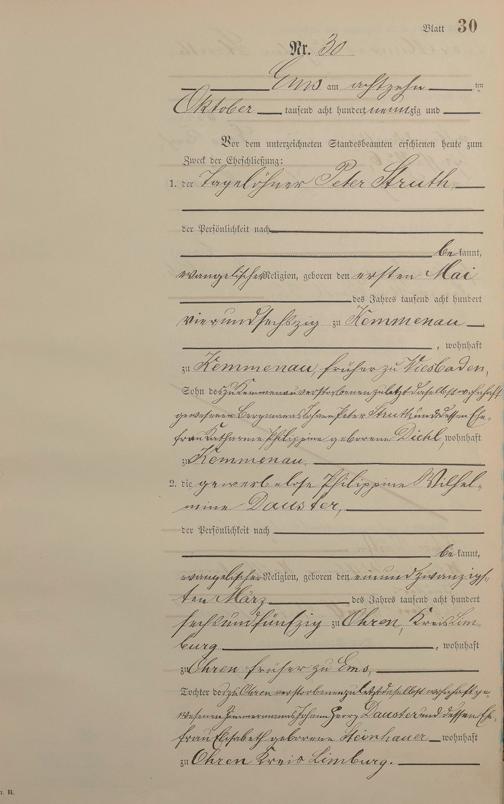 Blatt 30
Nr. 30
Ems am achtzehn ten
Oktober tausend acht hundert neunzig und
Vor dem unterzeichneten Standesbeamten erschienen heute zum
Zweck der Eheschließung:
1. der Tagelöhner Peter Struth,
der Persönlichkeit nach
be kannt,
evangelischer Religion, geboren den ersten Mai
des Jahres tausend acht hundert
vierundsechszig zu Kemmenau
, wohnhaft
zu Kemmenau, früher zu Wiesbaden,
Sohn des zu Kemmenau verstorbenen zuletzt daselbst wohnhaft
gewesenen Bergmanns Johann Peter Struth und dessen Ehe-
frau Katharine Philippine geborene Diehl, wohnhaft
zu Kemmenau,
2. die gewerbelose Philippine Wilhel-
mine Dauster,
der Persönlichkeit nach
be kannt,
evangelischer Religion, geboren den einundzwanzigs-
ten März des Jahres tausend acht hundert
sechsundfünfzig zu Ohren, Kreis Lim-
burg , wohnhaft
zu Ohren früher zu Ems,
Tochter des zu Ohren verstorbenen zuletzt daselbst wohnhaft ge-
wesenen Zimmermanns Johann Georg Dauster und dessen Ehe-
frau Elisabeth geborene Steinhauer wohnhaft
zu Ohren Kreis Limburg.